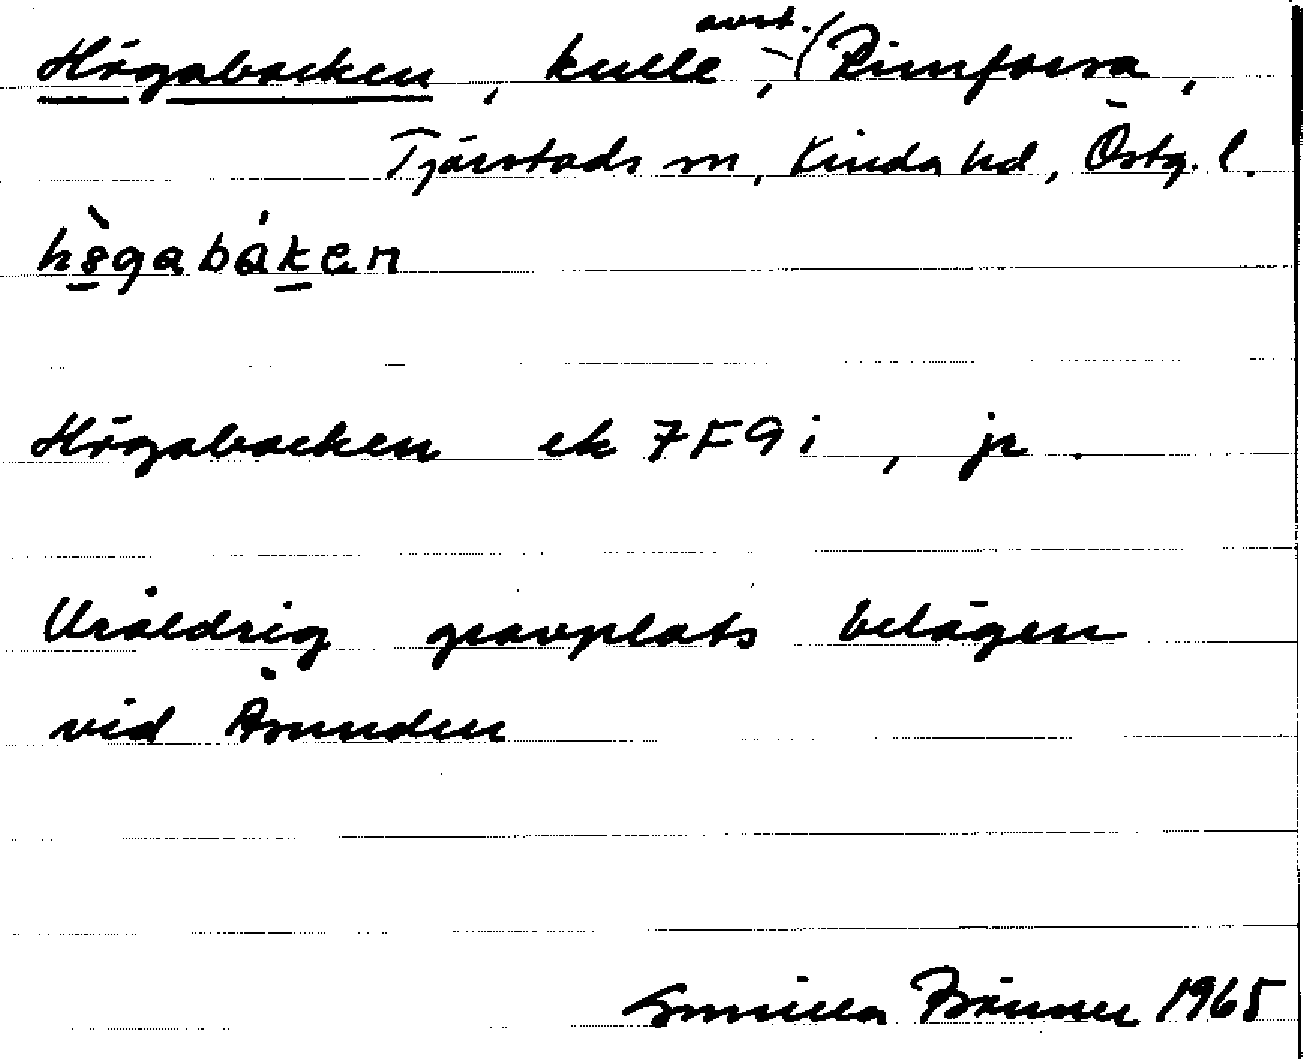 Högabacken, kulle, avst. (Rimforsa,
Tjärstads sn, Kinda hd, Östg. l.
högabakan
Högabacken ek 7F9i, jr.
Uråldrig gravplats belägen
vid Åsunden
Gunilla 1965